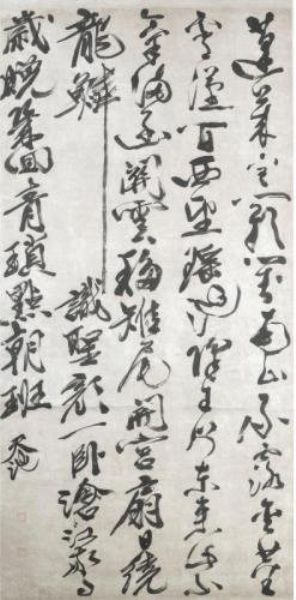 蓬萊宮闕對南山承露金莖
霄漢間西望瑤池降王母東來紫
氣滿函關雲移雉尾開宮扇日繞
龍鱗識聖顏一臥滄江驚
歲晚幾回青瑣點朝班